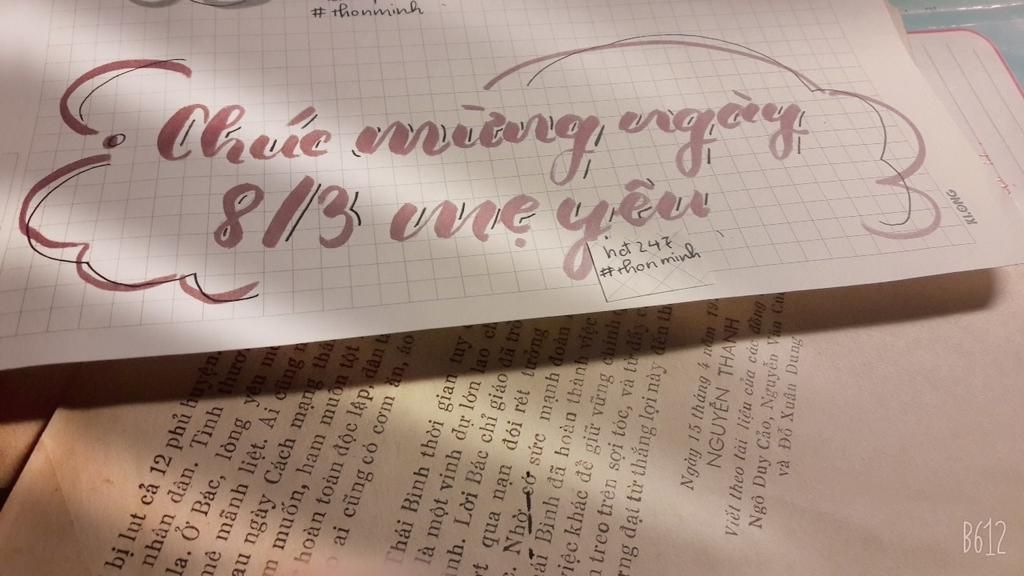 #thonminh
Chúc mừng ngày
8/3 mẹ yêu
hot 247
#thonminh
KLONG
bị lụt cả 12 phủ huyện
nhân dân. Tình thươ
la. Ở Bác, lòng yêu
mê mãnh liệt. Ai cũng
au ngày Cách mạng
m muốn, ham muốn tột
hoàn toàn độc lập, dân
ai cũng có cơm ăn, áo
Thái Bình thời gian tuy
là một vinh dự lớn lao
nh. Lời Bác chỉ giáo đã
t qua nạn đói rét tưởng
c. Nhờ có sức mạnh đoàn
hái Bình đã hoàn thành việc
việc khác để giữ vững chính
n treo trên sợi tóc, và từ đấy
ng đạt từ thắng lợi này đến
Ngày 15 tháng 4 năm
NGUYỄN THANH
Viết theo tài liệu của các đồng
Ngô Duy Cảo, Nguyễn Văn
và Đỗ Xuân Dung
B612